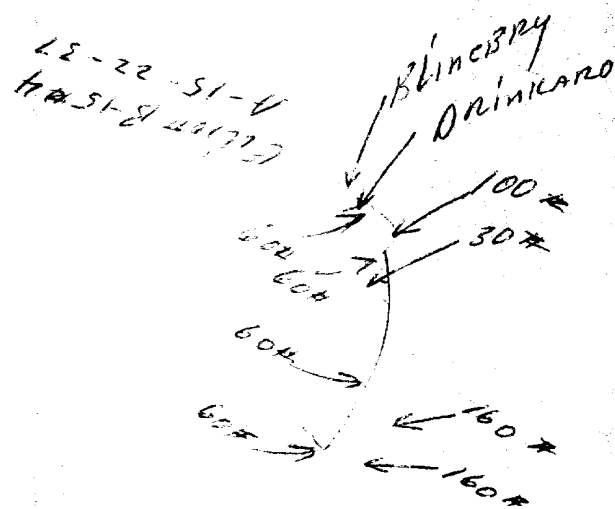 Elliott B-15 #4
A-15-22-37
BlineBRy
DRinKARD
100#
30#
60#
60#
60#
60#
160#
160#